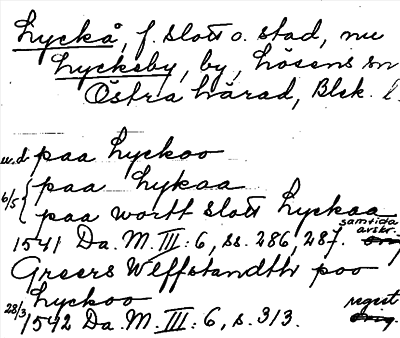 Lyckå, f. slott o. stad, nu
Lyckeby, by, Lösens sn
Östra härad, Blek. l.
u.d. paa Lyckoo
6/5 { paa Lykaa
paa wortt slott Lyckaa
1541 Da. M. III: 6, ss. 286, 287. samtida avskr.
Greers Wlffstandth poo
Lyckoo
28/3 1542 Da. M. III: 6, s. 313. regist